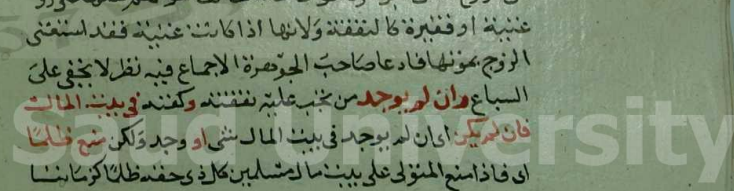 غنيىة او فقيرة كالنفقة ولانها اذا كانت غنية فقد استغنى
الزوج بموتها فادعا صاحب الجوهرة الاجماع فيه نظر لا يخفى على
السباع وان لم يوجد من تجب عليه نفقته وكفنه في بيت المال
فان لم يكن اى ان لم يوجد في بيت المال شئ او وجد ولكن منع ظلما
اى فاذا منع المتولى على بيت مال مسلمين كل ذى حقه ظلما
Saud University